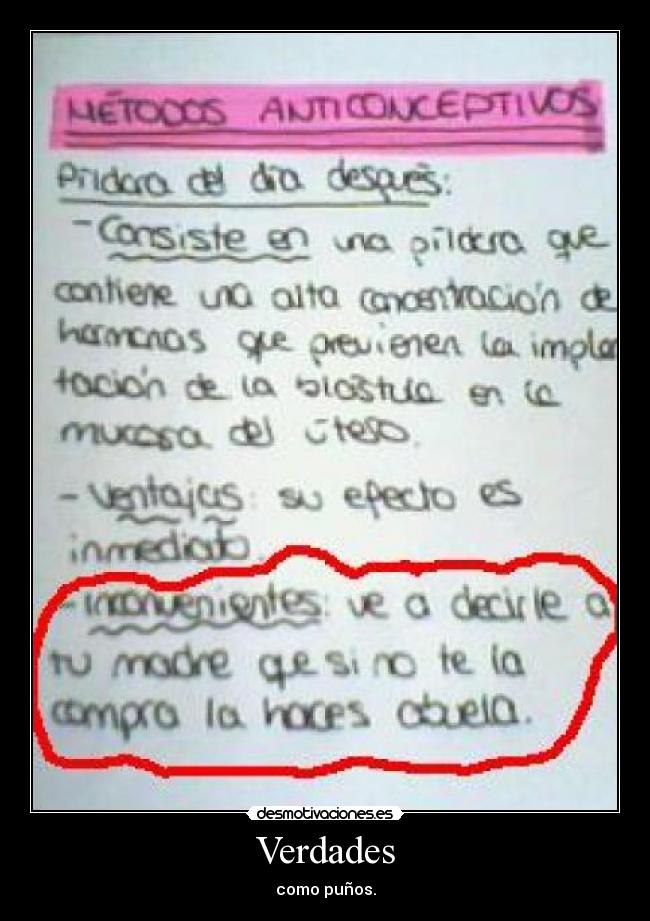 MÉTODOS ANTICONCEPTIVOS
Píldora del día después:
- Consiste en una píldora que
contiene una alta concentración de
hormonas que previenen la implan
tación de la blástula en la
mucosa del útero.
- Ventajas: su efecto es
inmediato.
- Inconvenientes: ve a decirle a
tu madre que si no te la
compra la haces abuela.
desmotivaciones.es
Verdades
como puños.